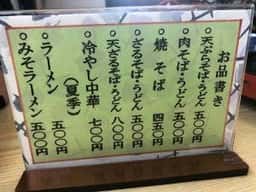 お品書き
天ぷらそば・うどん
肉そば・うどん
焼そば 四五〇円
ざるそば・うどん
天ざるそば・うどん 八〇〇円
冷やし中華 七〇〇円
(夏季)
ラーメン 五〇〇円
みそラーメン